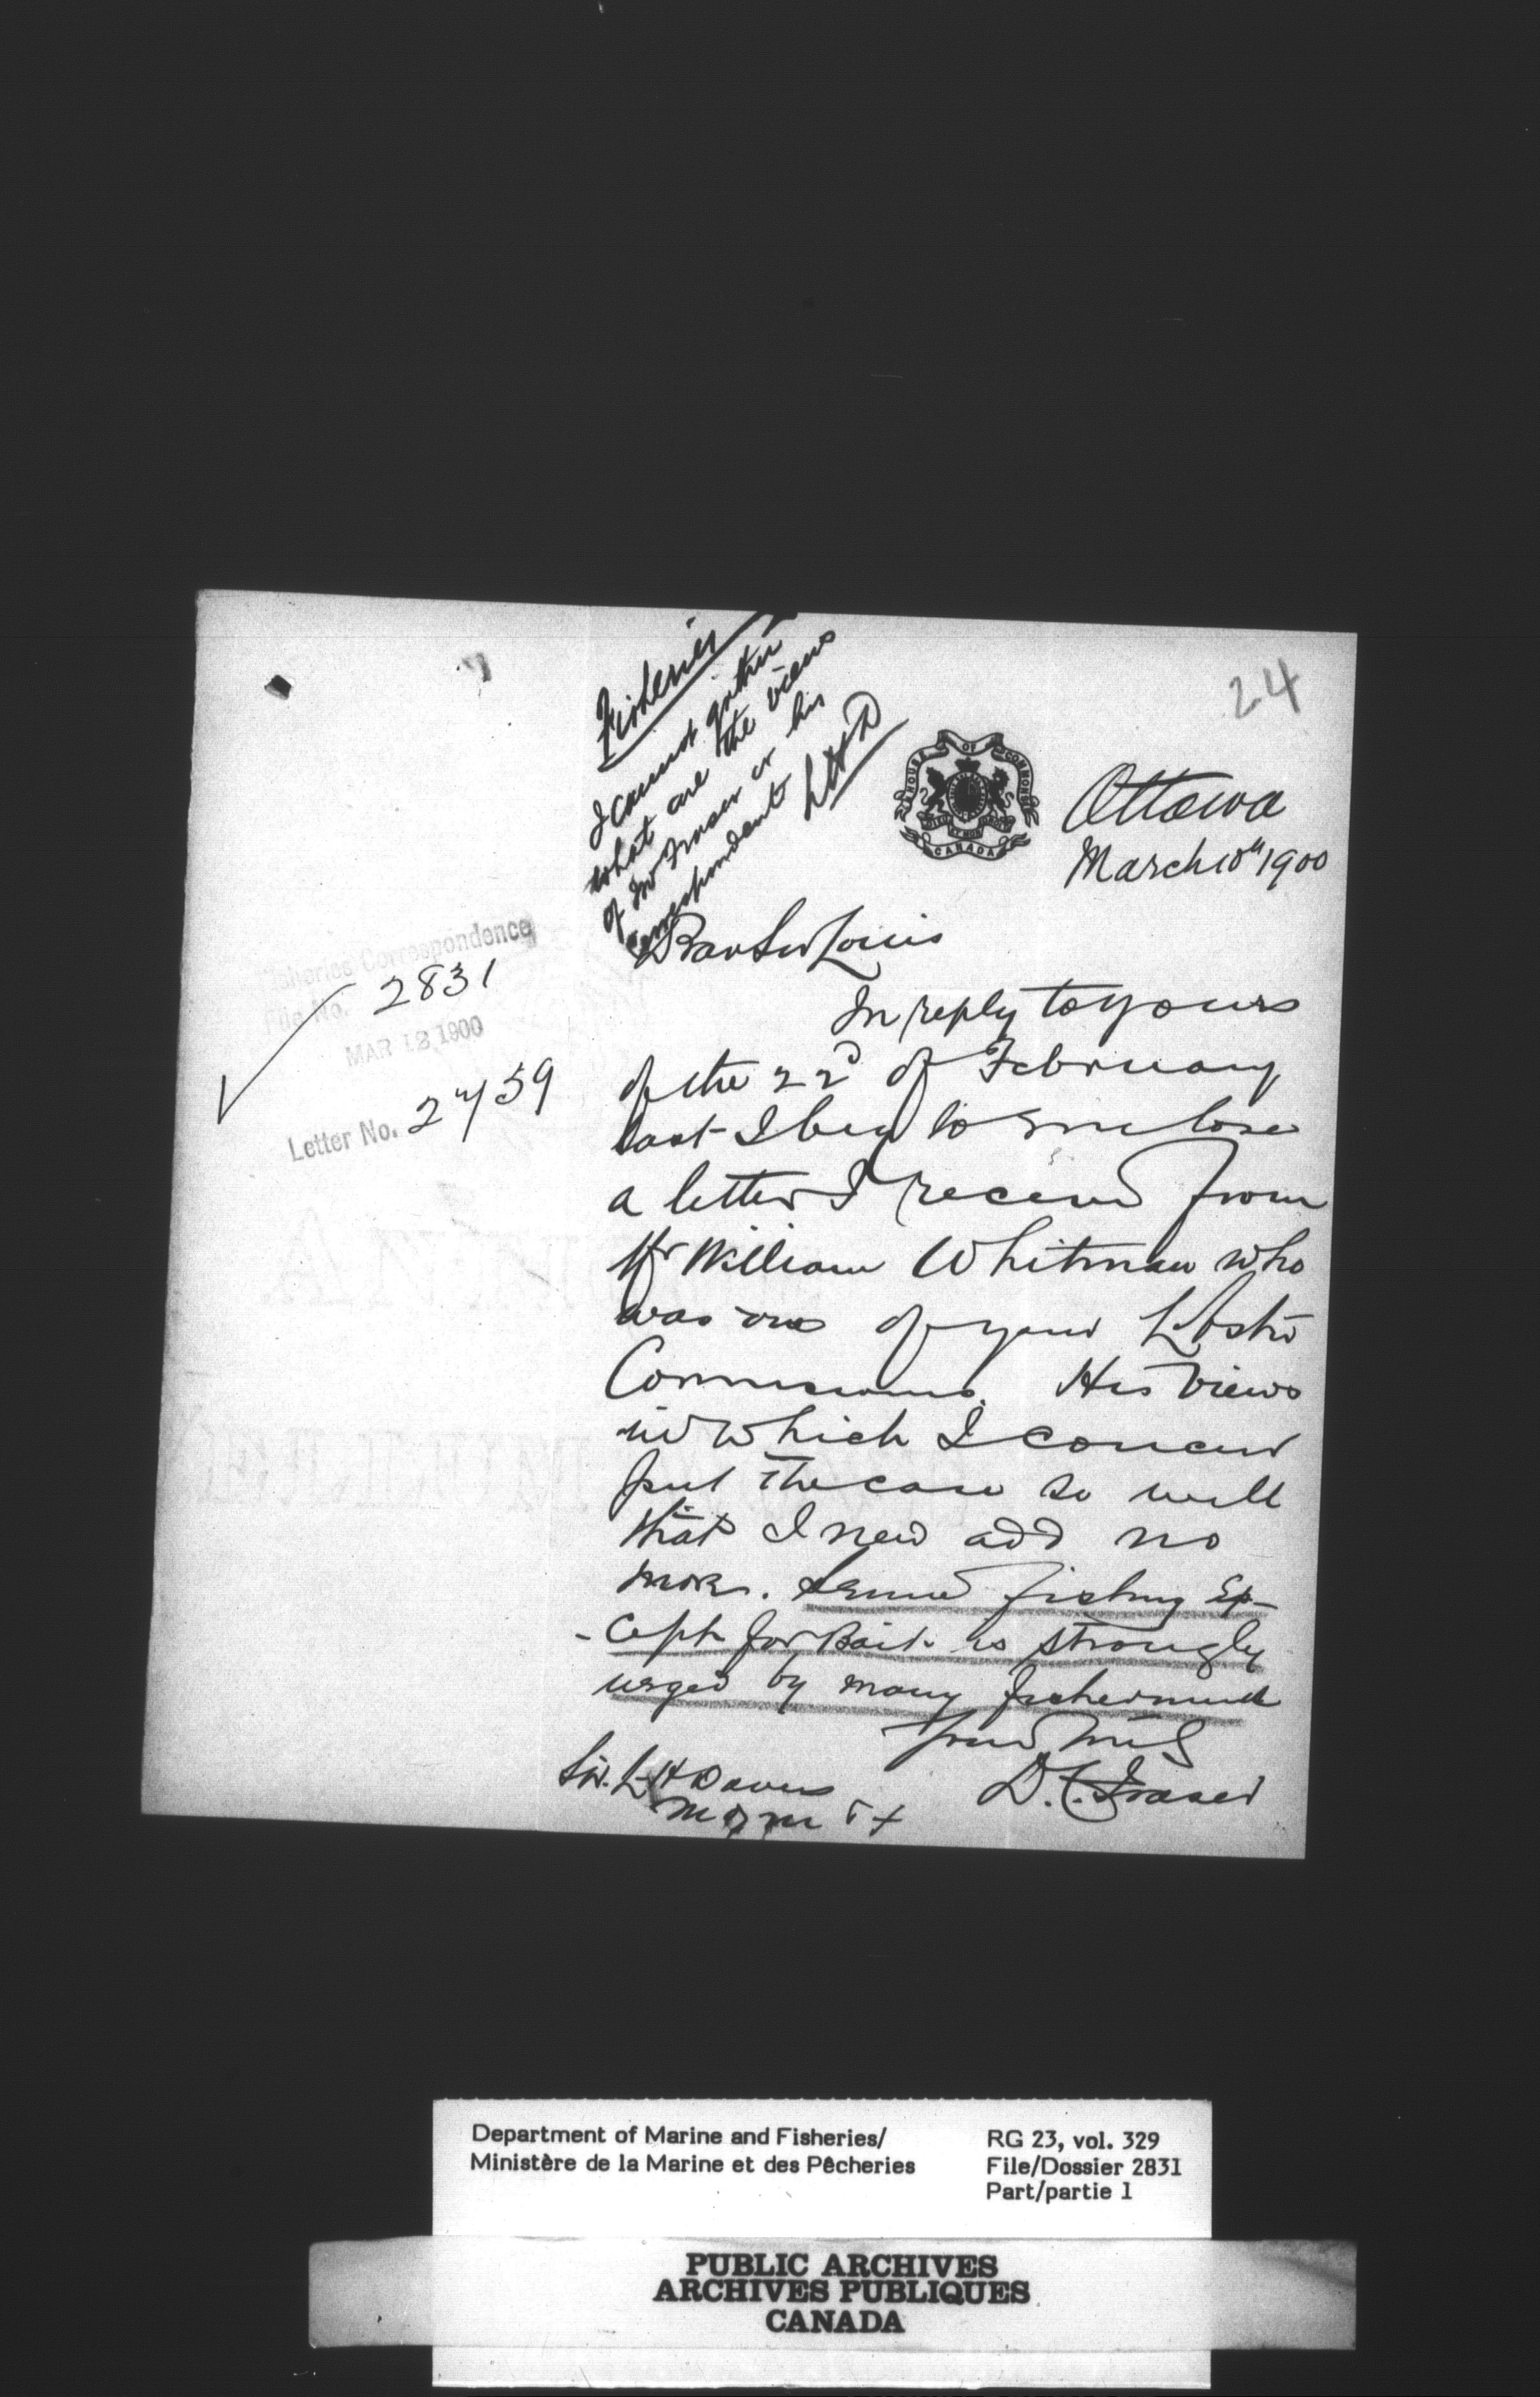 24
Fisheries
I cannot gather
what are the views
of Mr Fraser or his
Correspondent LHD
HOUSE OF COMMONS
CANADA
Ottawa
March 10th 1900
Fisheries Correspondence
File No. 2831
MAR 13 1900
Letter No. 2759
Dear Sir Louis
In reply to yours
of the 22d of February
last I beg to enclose
a letter I received from
Mr William Whitman who
was one of your Lobster
Commissions. His views
in which I concur
put the case so well
that I need add no
more. Seine fishing Ex-
-cept for Bait is strongly
urged by many fishermen
Yours truly
D.C. Fraser
Sir. L H Davies
M of M & F
Department of Marine and Fisheries/
Ministère de la Marine et des Pêcheries
RG 23, vol. 329
File/Dossier 2831
Part/partie 1
PUBLIC ARCHIVES
ARCHIVES PUBLIQUES
CANADA